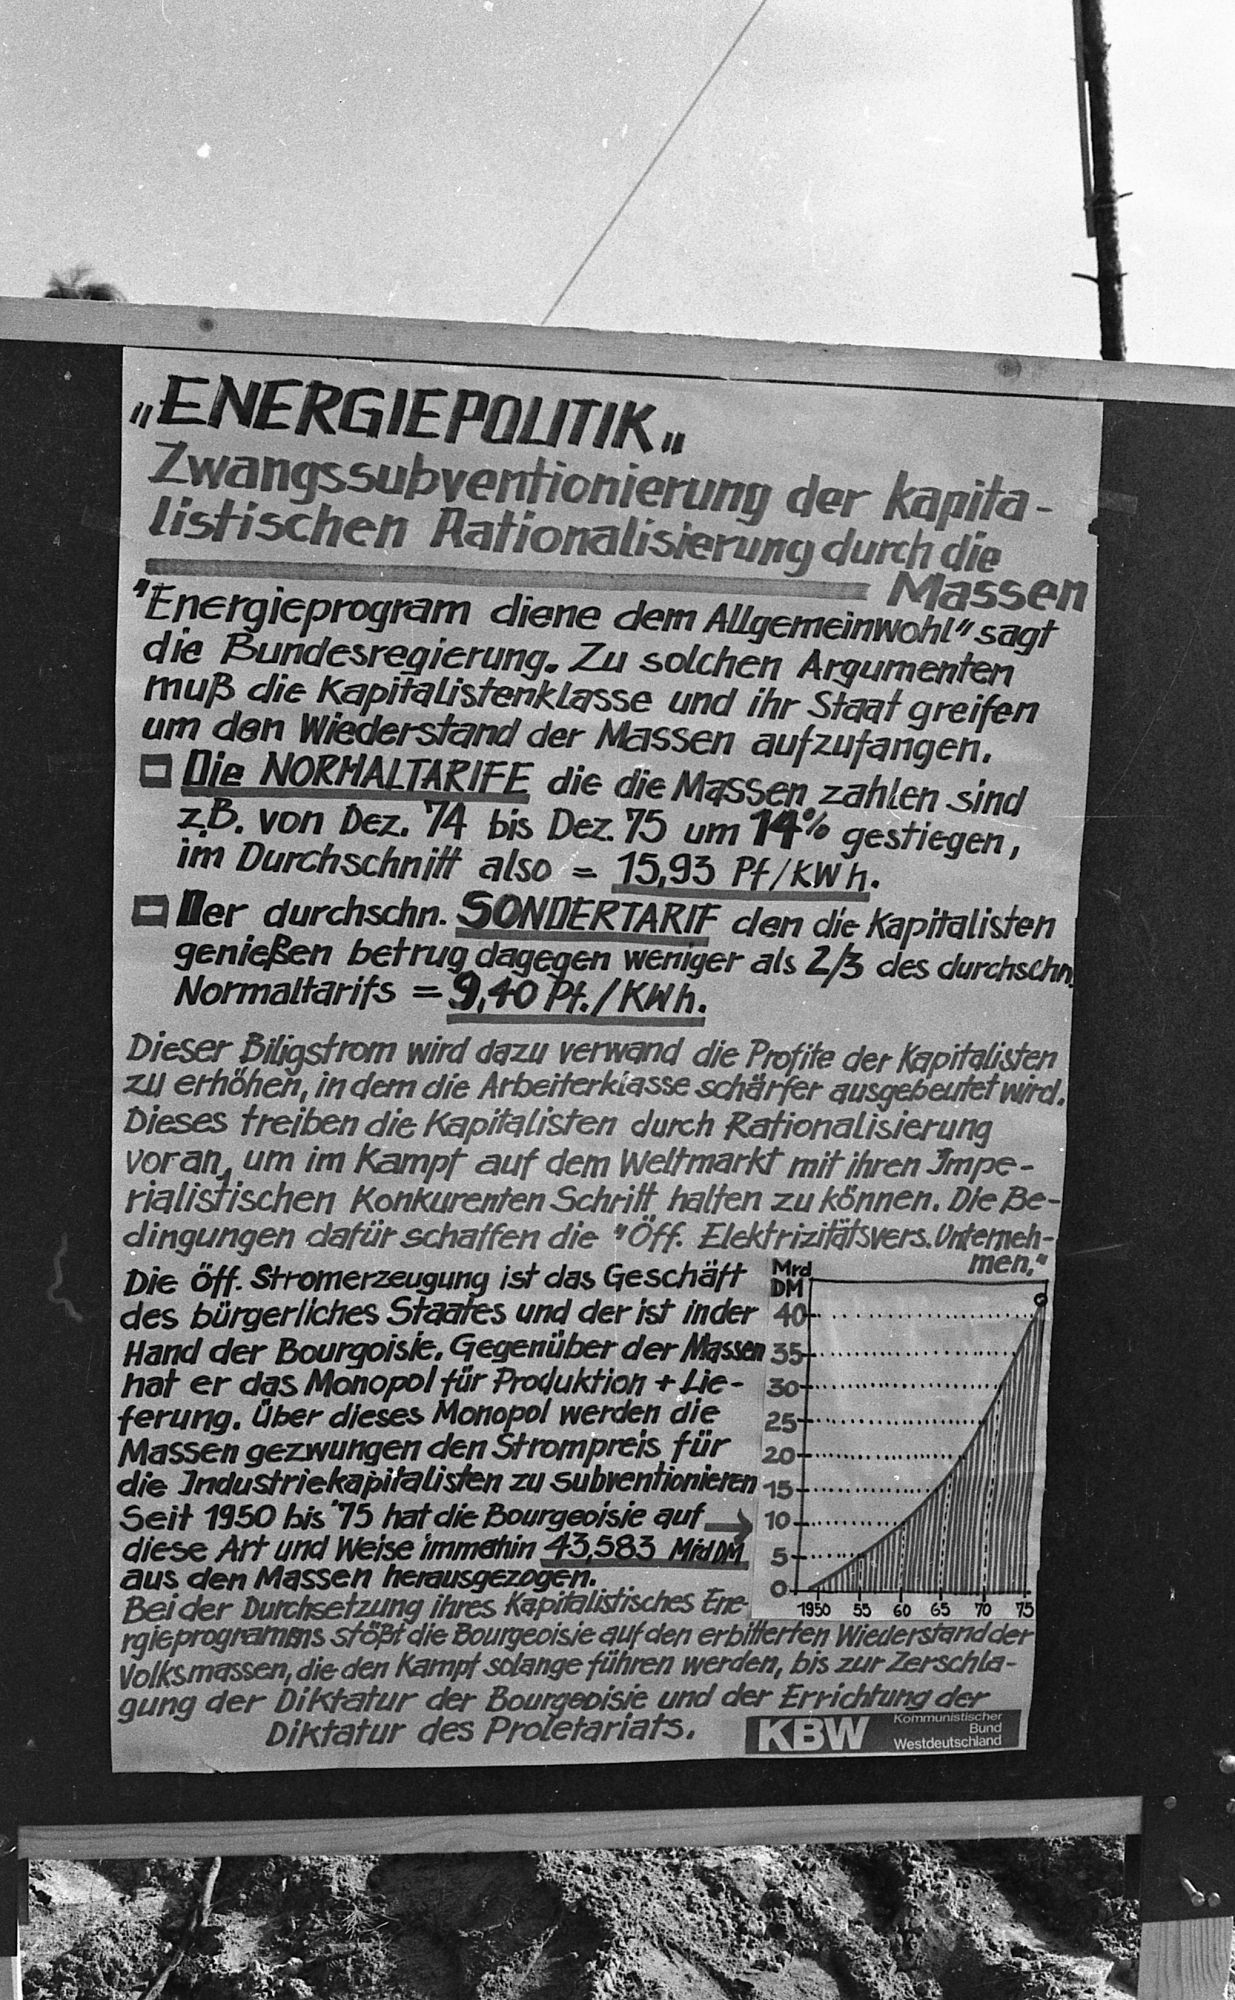 „ENERGIEPOLITIK„
Zwangssubventionierung der kapita-
listischen Rationalisierung durch die
Massen
"Energieprogram diene dem Allgemeinwohl" sagt
die Bundesregierung. Zu solchen Argumenten
muß die Kapitalistenklasse und ihr Staat greifen
um den Wiederstand der Massen aufzufangen.
Die NORMALTARIFE die die Massen zahlen sind
z.B. von Dez. '74 bis Dez. 75 um 14% gestiegen,
im Durchschnitt also = 15,93 Pf/KWh.
Der durchschn. SONDERTARIF den die Kapitalisten
genießen betrug dagegen weniger als 2/3 des durchschn.
Normaltarifs = 9,40 Pf./KWh.
Dieser Biligstrom wird dazu verwand die Profite der Kapitalisten
zu erhöhen, in dem die Arbeiterklasse schärfer ausgebeutet wird.
Dieses treiben die Kapitalisten durch Rationalisierung
voran, um im Kampf auf dem Weltmarkt mit ihren Impe-
rialistischen Konkurenten Schritt halten zu können. Die Be-
dingungen dafür schaffen die "Öff. Elektrizitätsvers. Unterneh-
men."
Die öff. Stromerzeugung ist das Geschäft
des bürgerliches Staates und der ist inder
Hand der Bourgoisie. Gegenüber der Massen
hat er das Monopol für Produktion + Lie-
ferung. Über dieses Monopol werden die
Massen gezwungen den Strompreis für
die Industriekapitalisten zu subventionieren
Seit 1950 bis '75 hat die Bourgeoisie auf →
diese Art und Weise immehin 43,583 Mrd DM
aus den Massen herausgezogen.
Mrd
DM
40
35
30
25
20
15
10
5
0
1950 55 60 65 70 75
Bei der Durchsetzung ihres Kapitalistisches Ene-
rgieprogramms stößt die Bourgeoisie auf den erbitterten Wiederstand der
Volksmassen, die den Kampf solange führen werden, bis zur Zerschla-
gung der Diktatur der Bourgeoisie und der Errichtung der
Diktatur des Proletariats.
KBW Kommunistischer
Bund
Westdeutschland